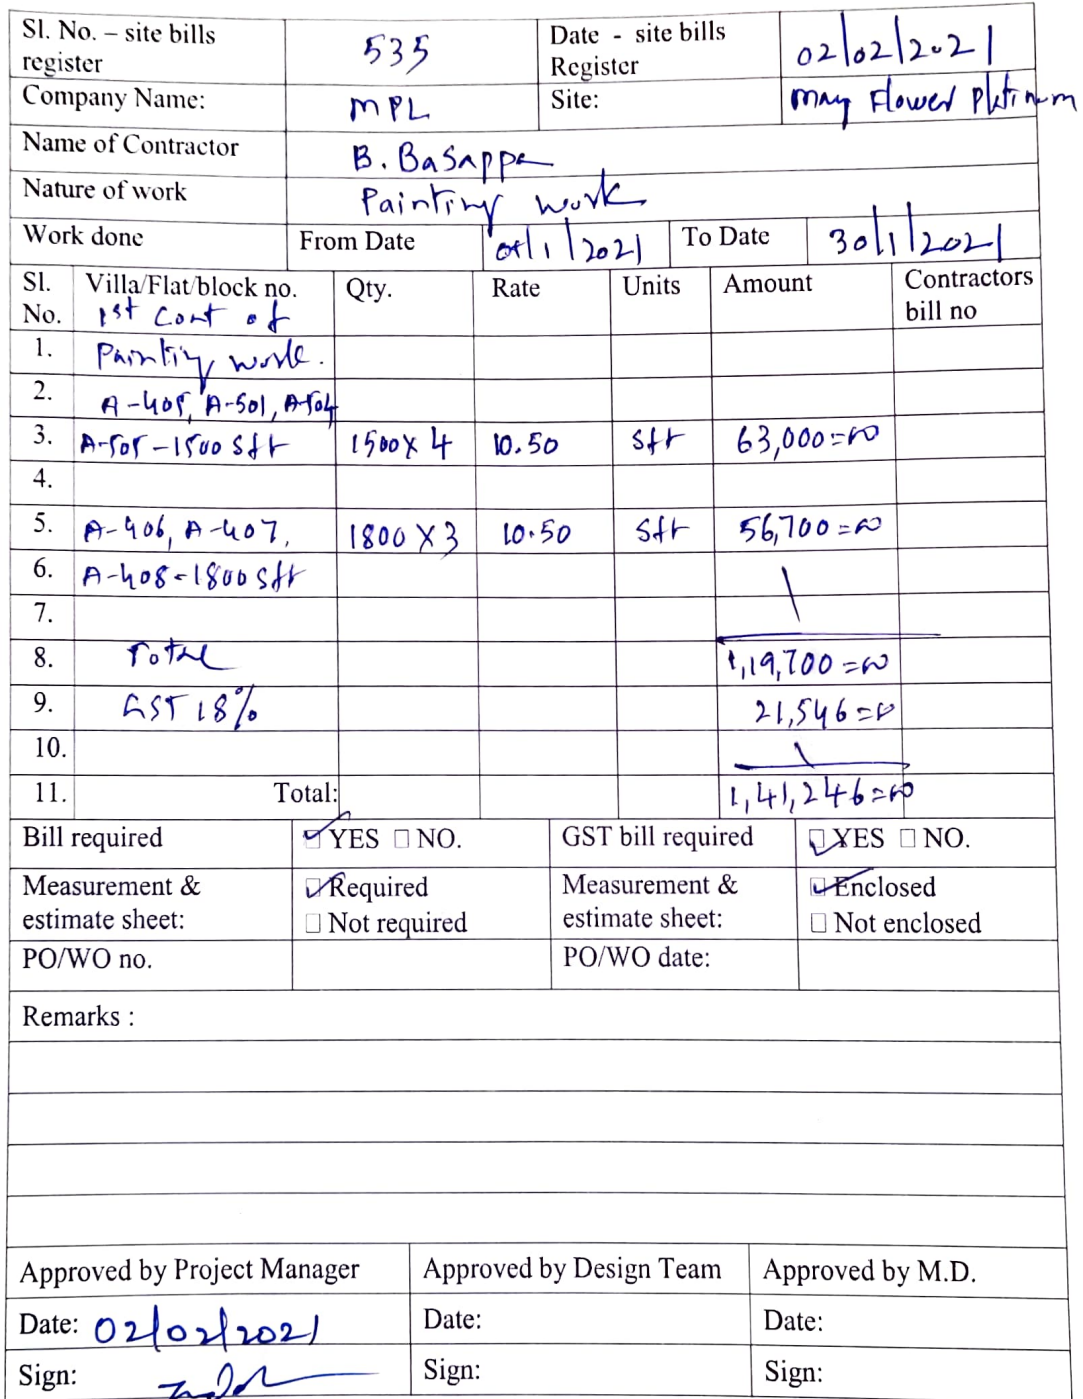 Sl. No. – site bills register 535 Date - site bills Register 02/02/2021
Company Name: MPL Site: May Flower Platinum
Name of Contractor B. Basappa
Nature of work Painting work
Work done From Date 01/1/2021 To Date 30/1/2021
Sl. No. Villa/Flat/block no. Qty. Rate Units Amount Contractors bill no
1st Cont of
1. Painting work.
2. A-405, A-501, A-504
3. A-505 - 1500 Sft 1500 x 4 10.50 Sft 63,000=00
4.
5. A-406, A-407, 1800 X 3 10.50 Sft 56,700=00
6. A-408 - 1800 Sft
7.
8. Total 1,19,700=00
9. GST 18% 21,546=00
10.
11. Total: 1,41,246=00
Bill required YES NO. GST bill required YES NO.
Measurement & estimate sheet: Required Not required Measurement & estimate sheet: Enclosed Not enclosed
PO/WO no. PO/WO date:
Remarks :
Approved by Project Manager Approved by Design Team Approved by M.D.
Date: 02/02/2021 Date: Date:
Sign: Sign: Sign: